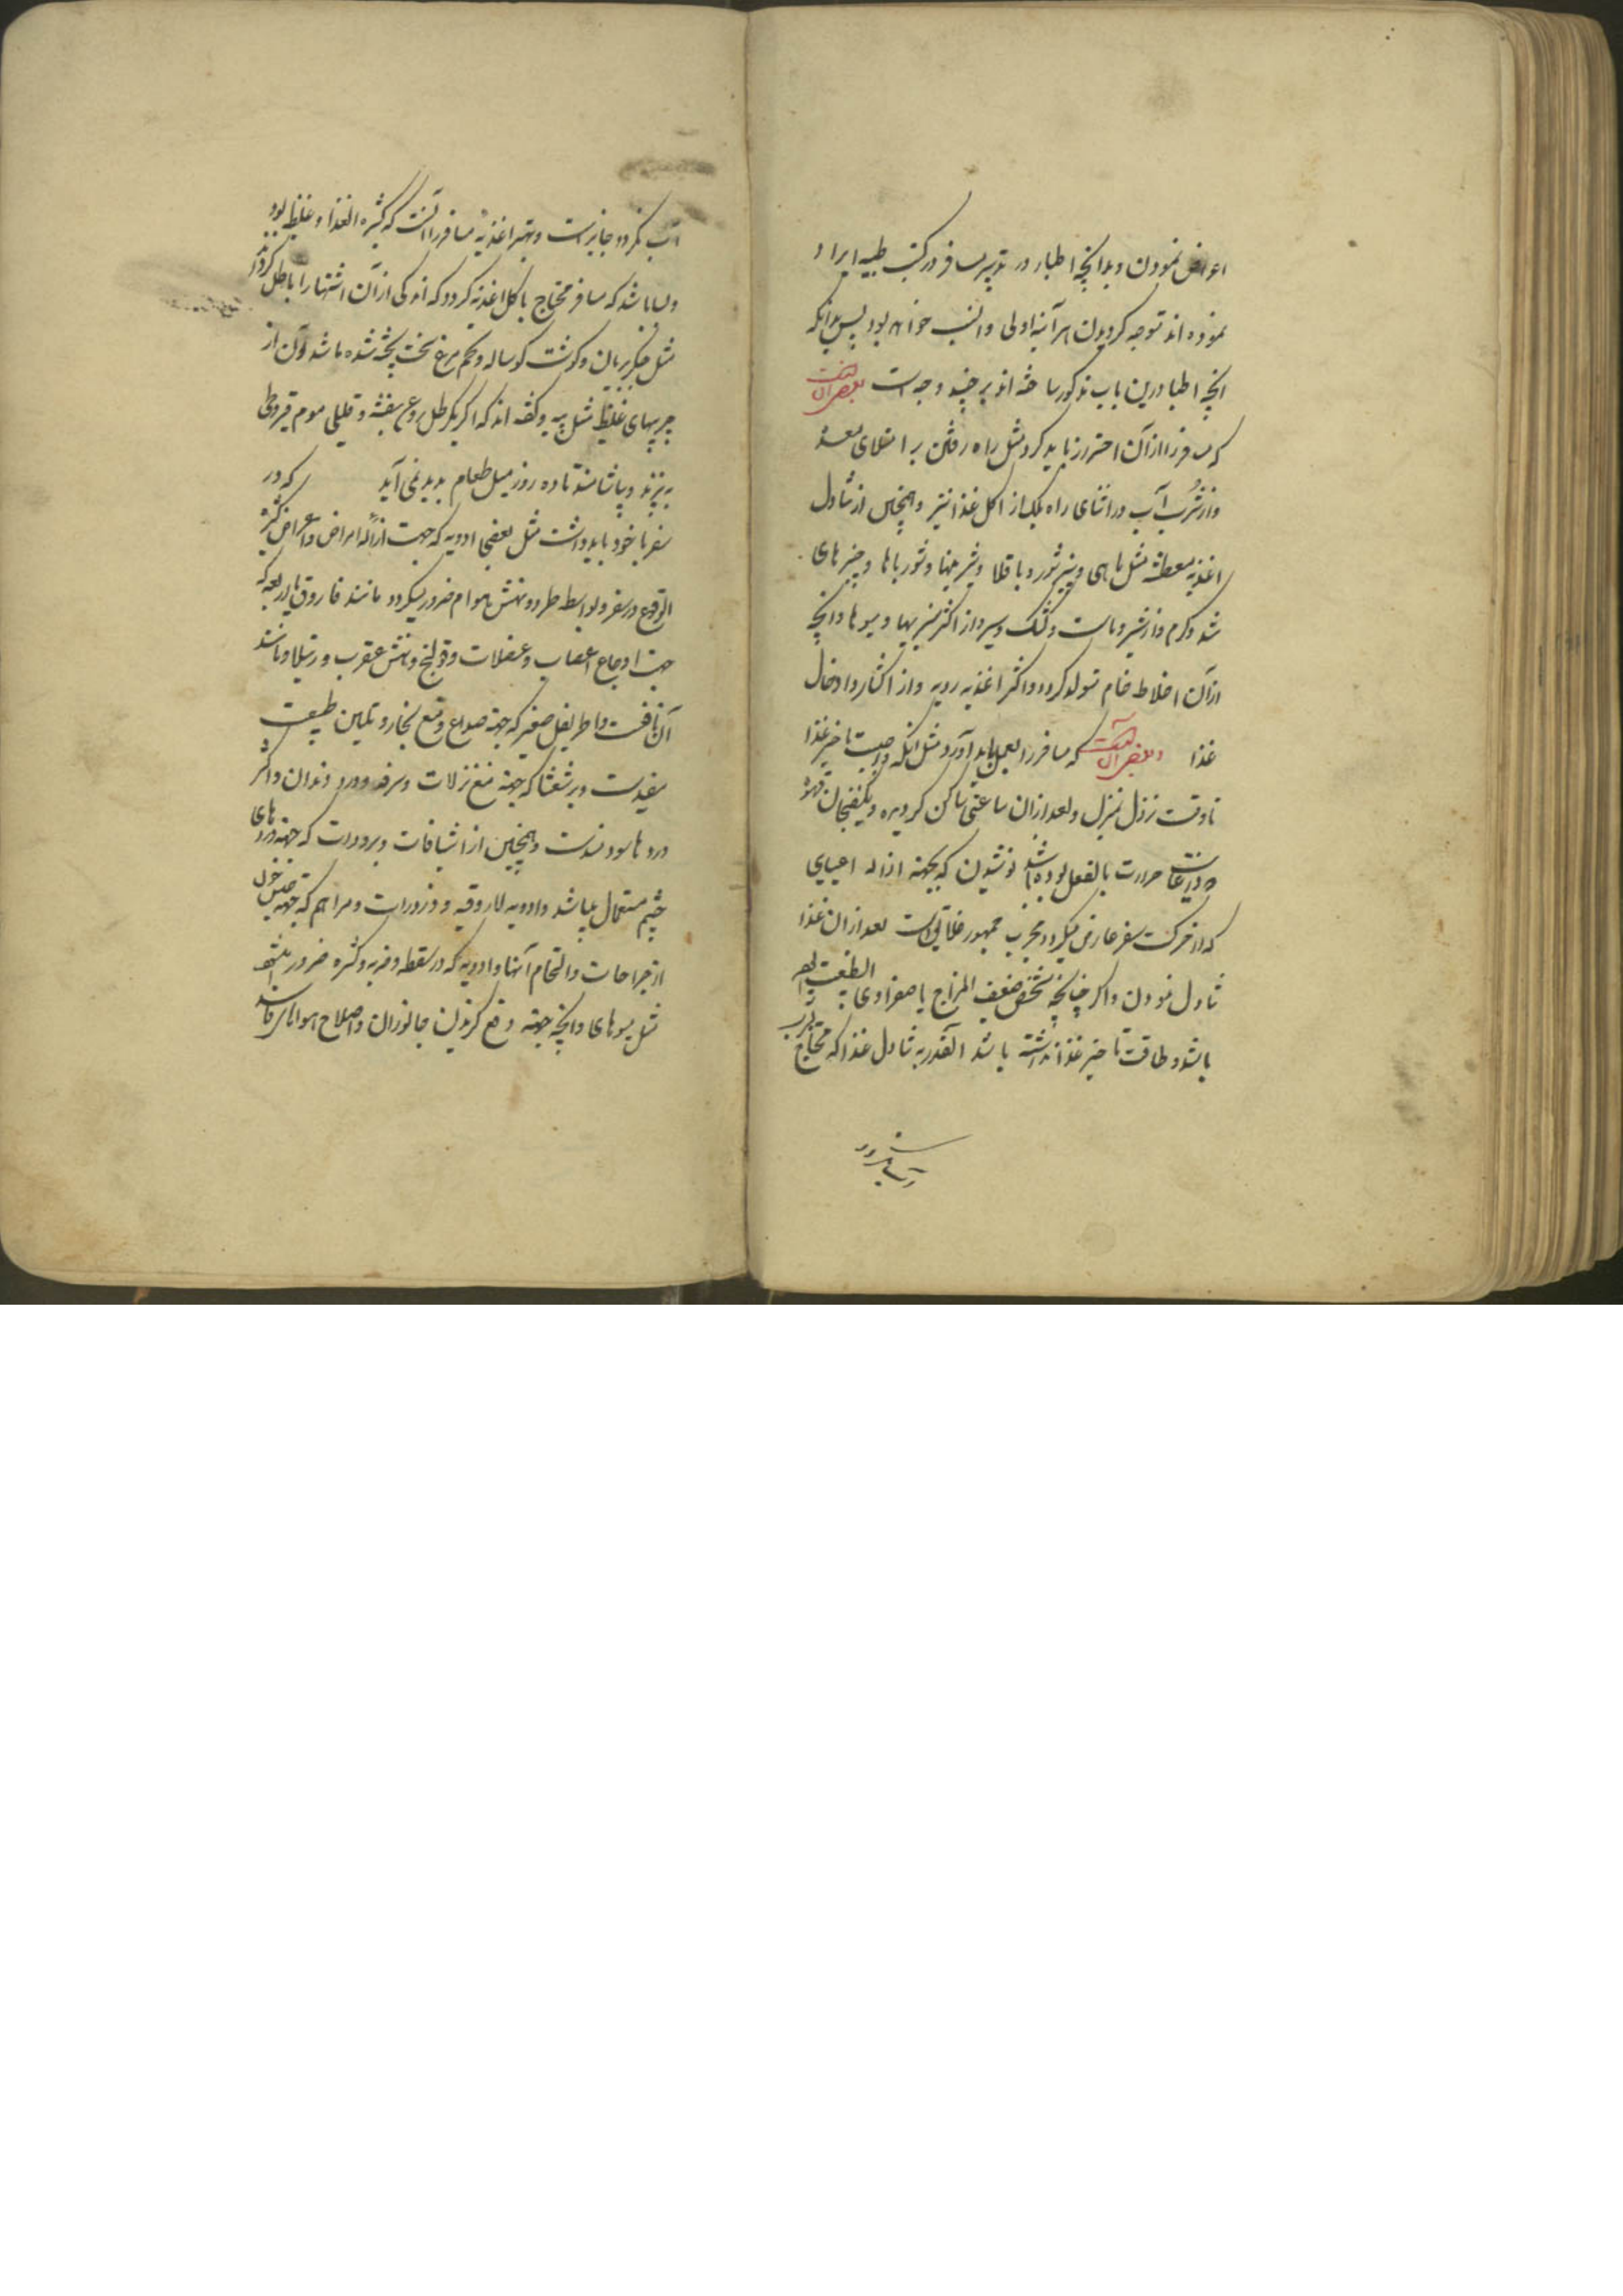 اعراض نمودن و بدانچه اطبا در تدبیر مسافر در کتب طبیه ایراد
نموده اند توجه کردیدن هر آینه اولی و انسب خواهد بود پس بدانکه
انچه اطبا درین باب مذکور ساخته اند بر چند وجه است بعضی آنست
که مسافر را از آن احتراز باید کرد مثل راه رفتن بر امتلای معده
و از شرب آب در اثنای راه بلک از اکل غذا نیز و همچنین از تناول
اغذیه معطشه مثل ماهی و پنیر شور و باقلا و شیرینها و شورباها و چیزهای
تند و کرم و از شیر و ماست و کشک و سیر و از اکثر سبزیها و میوها و انچه
از آن اخلاط خام متولد کردد و اکثر اغذیه ردیه و از اکثار و ادخال
غذا و بعضی آنست که مسافر را بعمل باید آورد مثل انکه واجبست تاخیر غذا
تا وقت نزول بمنزل و بعد از ان ساعتی ساکن کردیده و یکفنجان قهوه
که در غایت حرارت بالفعل بوده باشد نوشیدن که بجهته ازاله اعیایی
که از حرکت سفر عارض میکردد مجرب جمهور خلایق است بعد از ان غذا
تناول نمودن و اکر چنانچه شخص ضعیف المزاج یا صفراوی الطبیعت
باشد و طاقت تاخیر غذا نداشته باشد آنقدر به تناول غذا که محتاج بشرب
آب نکردد
آب نکردد جایز است و بهتر اغذیه مسافر را آنست که کثیره الغذا و غلیظ بود
و بسا باشد که مسافر محتاج باکل اغذیه کردد که اندکی از آن اشتها را باطل کرداند
مثل جکر بریان و کوشت کوساله و تخم مرغ سخت پخته شده باشد و آن از
چربیهای غلیظ مثل پیه و کفته اند که اکر یکرطل روغن بنفشه و قلیلی موم قیروطی
بپزند و بیاشامند تا ده روز میل طعام پدید نمی آید که در
سفر با خود باید داشت مثل بعضی ادویه که جهت ازاله امراض و اعراض کثیر
الوقوع در سفر و بواسطه طرد و نهش هوام ضرور میکردد مانند فاروق یا اربعه که
جهت اوجاع اعصاب و عضلات و قولنج و نهش عقرب و رتیلا و مانند
آن نافعست و اطریفل صغیر که جهته صداع و قمع بخار و تلیین طبیعت
مفیدست و برشعثا که جهته منع نزلات و سرفه و درد دندان و اکثر
دردها سودمندست و همچنین از اشیافات و برودات که جهته دردهای
چشم مستعمل میباشد و ادویه لازوقیه و ذرورات و مراهم که جهته حبس خون
از جراحات و التحام آنها و ادویه که در سقطه و ضربه و کسره ضرور میشود
مثل مومیای و انچه جهته دفع کزیدن جانوران و اصلاح هوا و